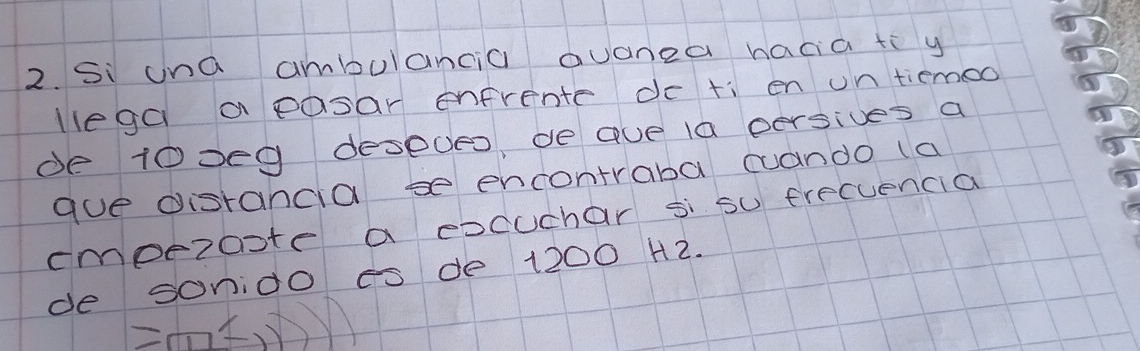 2. Si una ambulancia avanza hacia ti y
llega a pasar enfrente de ti en un tiempo
de 10 seg despues, de que la persives a
que distancia se encontraba cuando la
empezaste a escuchar si su frecuencia
de sonido es de 1200 Hz.